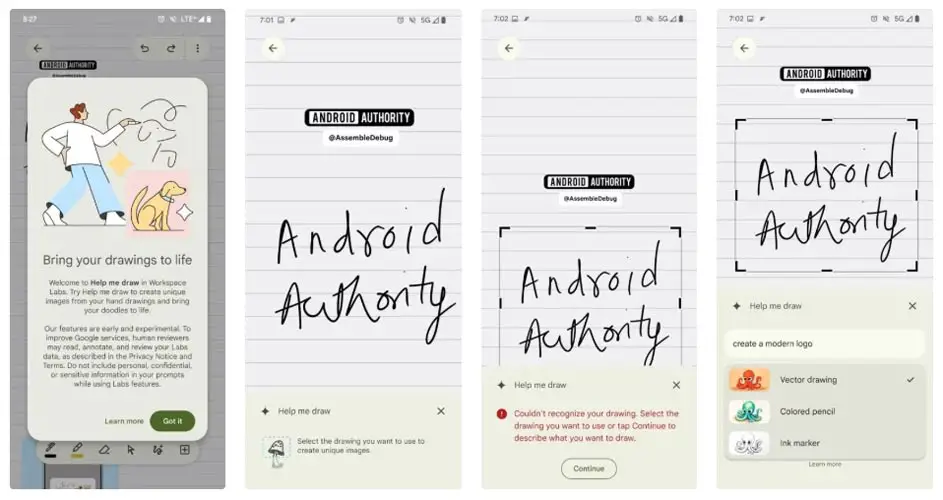 8:27
LTE+
ANDROID AUTHORITY
@AssembleDebug
Bring your drawings to life
Welcome to Help me draw in Workspace
Labs. Try Help me draw to create unique
images from your hand drawings and bring
your doodles to life.
Our features are early and experimental. To
improve Google services, human reviewers
may read, annotate, and review your Labs
data, as described in the Privacy Notice and
Terms. Do not include personal, confidential,
or sensitive information in your prompts
while using Labs features.
Learn more
Got it
7:01
5G
ANDROID AUTHORITY
@AssembleDebug
Android
Authority
Help me draw
Select the drawing you want to use to
create unique images.
7:02
5G
ANDROID AUTHORITY
@AssembleDebug
Android
Authority
Help me draw
Couldn't recognize your drawing. Select the
drawing you want to use or tap Continue to
describe what you want to draw.
Continue
7:02
5G
ANDROID AUTHORITY
@AssembleDebug
Android
Authority
Help me draw
create a modern logo
Vector drawing
Colored pencil
Ink marker
Learn more